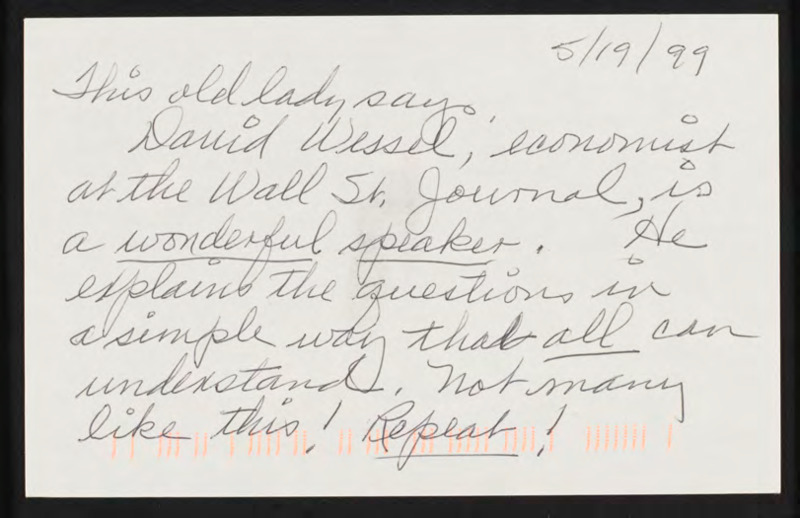 5/19/99
This old lady says
David Wessel, economist
at the Wall St. Journal, is
a wonderful speaker. He
explains the questions in
a simple way that all can
understand. Not many
like this! Repeat!